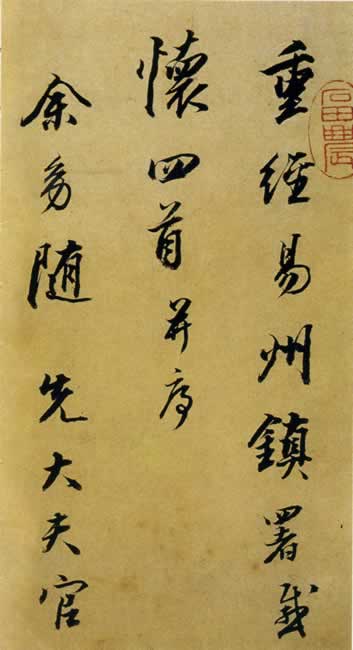 重經易州鎮署感
懷四首并序
余随先大夫官